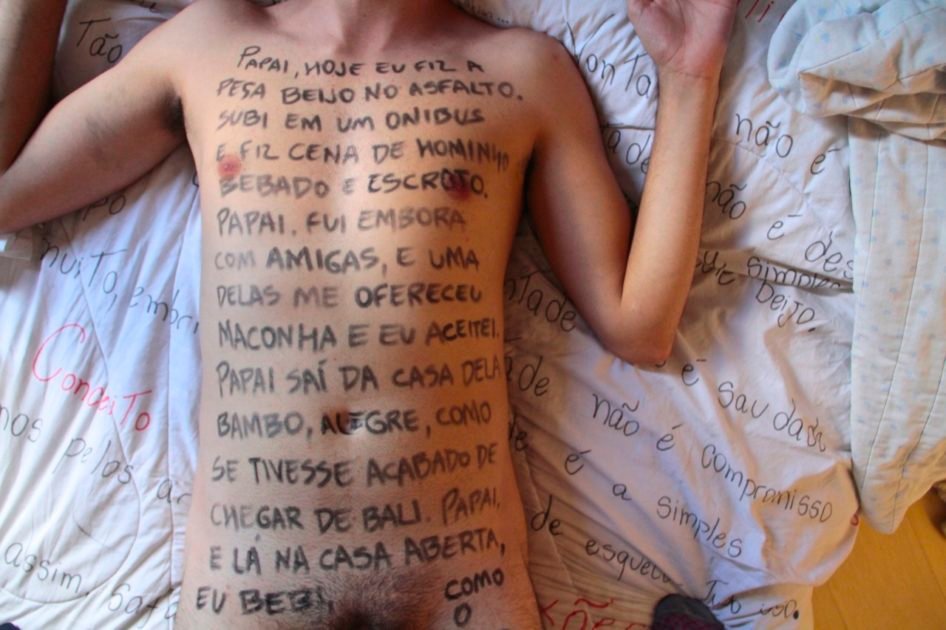 PAPAI, HOJE EU FIZ A
PEÇA BEIJO NO ASFALTO.
SUBI EM UM ONIBUS
E FIZ CENA DE HOMINHO
BEBADO E ESCROTO.
PAPAI, FUI EMBORA
COM AMIGAS, E UMA
DELAS ME OFERECEU
MACONHA E EU ACEITEI.
PAPAI SAÍ DA CASA DELA
BAMBO, ALEGRE, COMO
SE TIVESSE ACABADO DE
CHEGAR DE BALI. PAPAI,
E LÁ NA CASA ABERTA,
EU BEBI,
COMO
O
Tão
muito, embri
Conceito
nos pelos
assim.
não é
não é des
simples
beijo.
é saudade
não é compromisso
é a simples
de